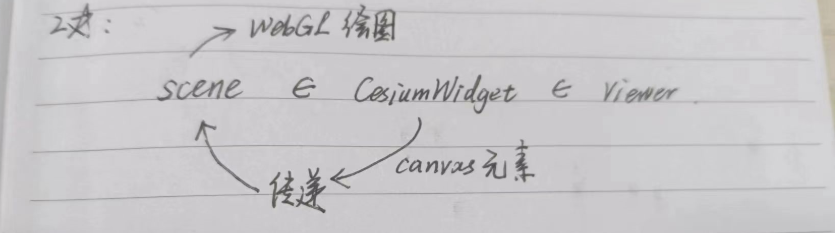 → WebGL 绘图
scene ∈ CesiumWidget ∈ Viewer
canvas 元素
传递